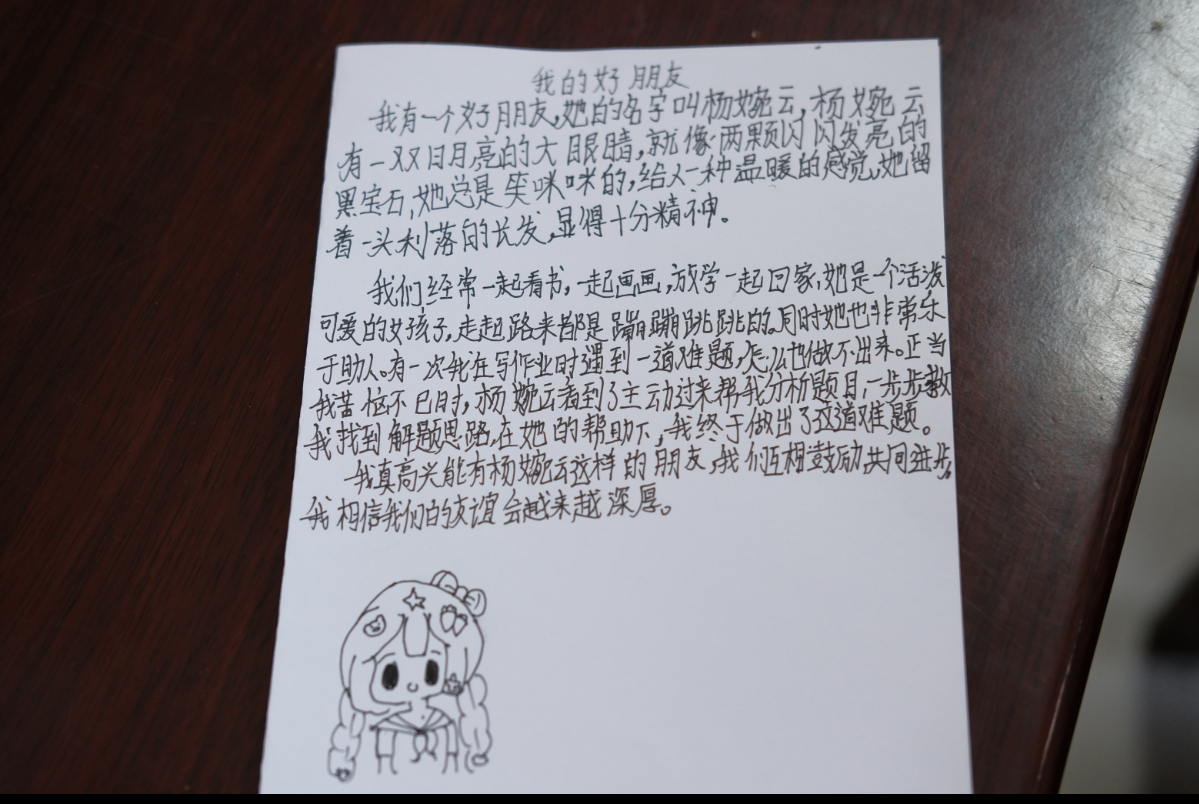 我的好朋友
我有一个好朋友,她的名字叫杨婉云,杨婉云
有一双明亮的大眼睛,就像两颗闪闪发亮的
黑宝石,她总是笑咪咪的,给人一种温暖的感觉,她留
着一头利落的长发,显得十分精神。
我们经常一起看书,一起画画,放学一起回家,她是一个活泼
可爱的女孩子,走起路来都是蹦蹦跳跳的。同时她也非常乐
于助人。有一次我在写作业时遇到一道难题,怎么也做不出来。正当
我苦恼不已时,杨婉云看到了主动过来帮我分析题目,一步步教
我找到解题思路,在她的帮助下,我终于做出了这道难题。
我真高兴能有杨婉云这样的朋友,我们互相鼓励共同进步,
我相信我们的友谊会越来越深厚。